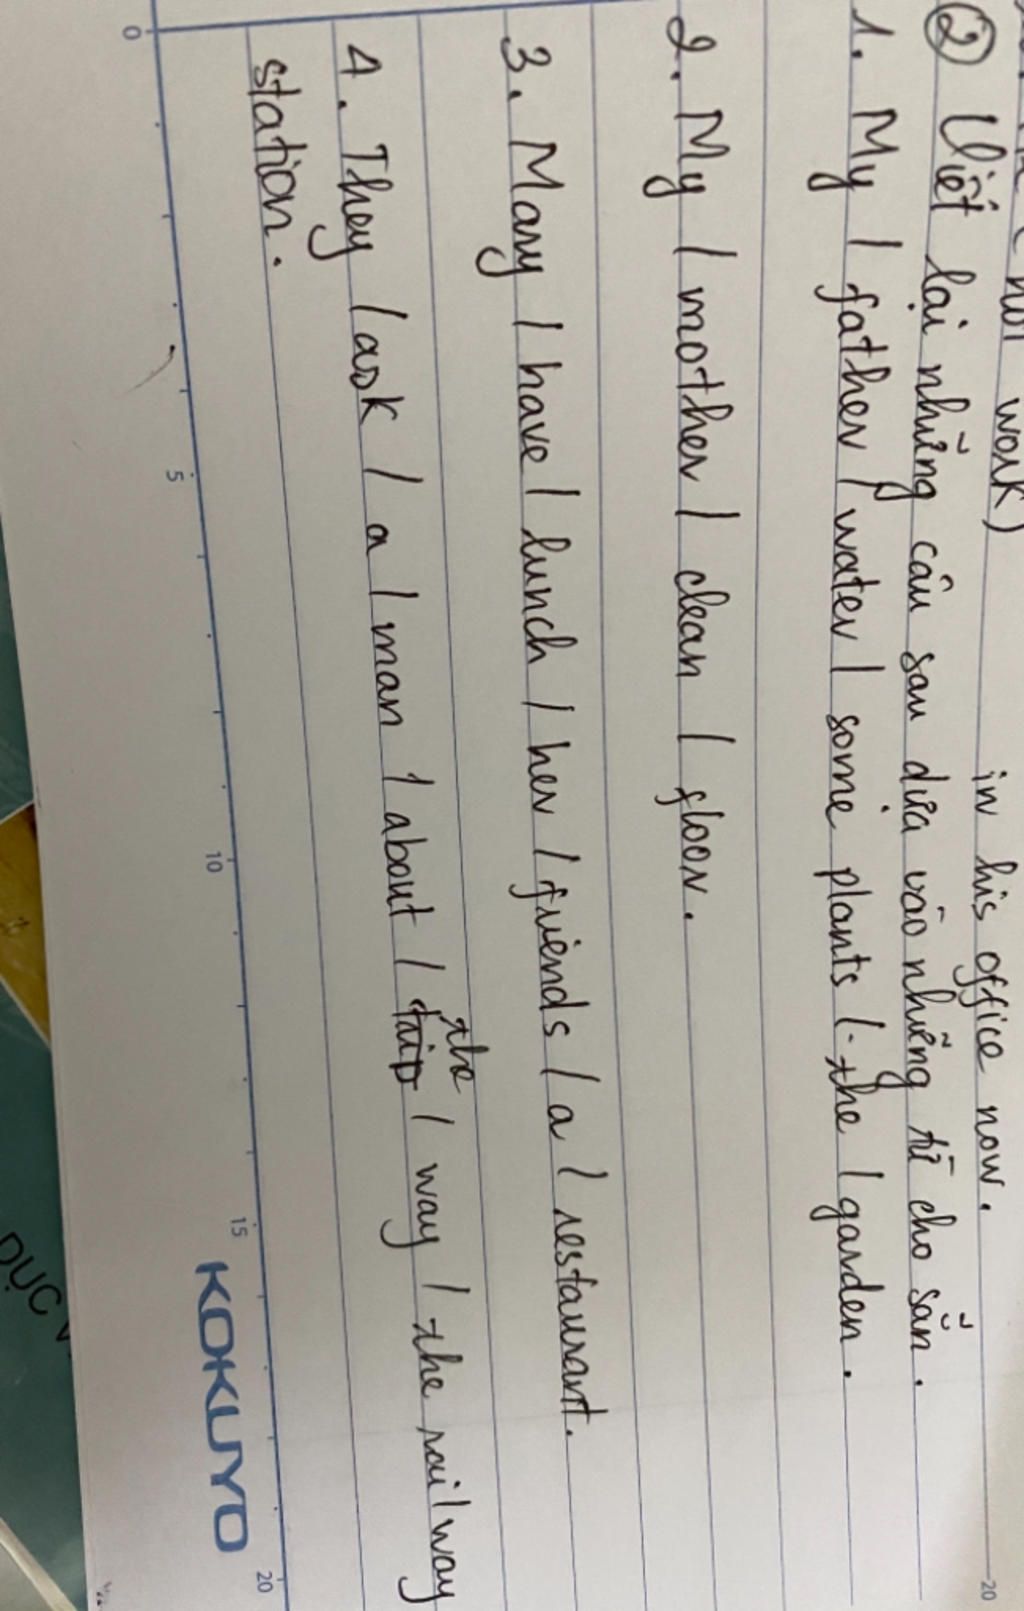 not work) in his office now.
② Viết lại những câu sau dựa vào những từ cho sẵn.
1. My / father / water / some plants / the / garden.
2. My / mother / clean / floor.
3. Mary / have / lunch / her / friends / a / restaurant.
the
4. They / ask / a / man / about / / way / the railway
station.
0 5 10 15 20
KOKUYO
20
DỤC